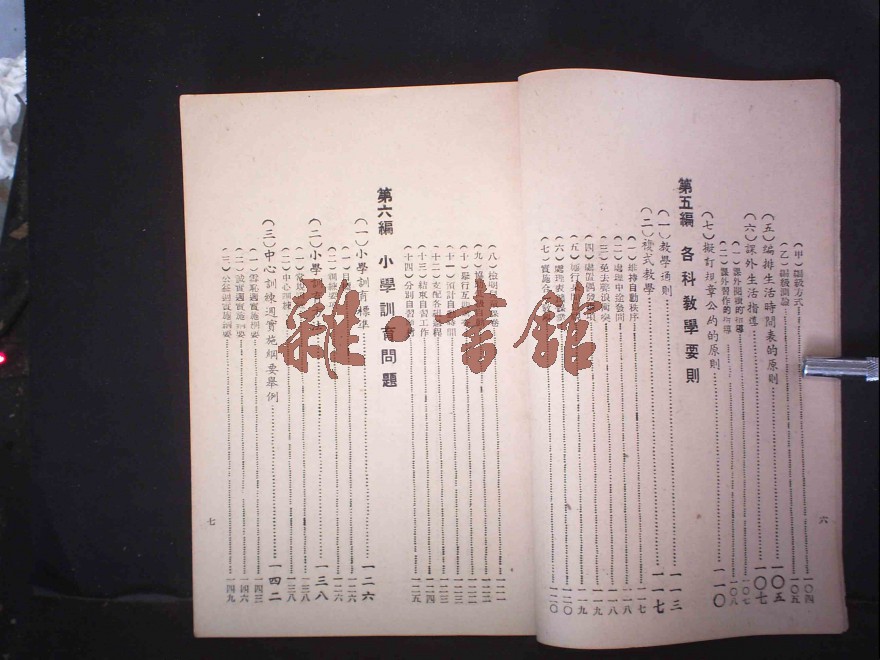 (甲)編級方式……一〇四
(乙)編級測論……一〇五
(五)編排生活時間表的原則……一〇五
(六)課外生活指導……一〇七
(一)課外閱讀的指導……一〇七
(二)課外習作的指導……一〇八
(七)擬訂規章公約的原則……一一〇
第五編 各科教學要則
(一)教學通則……一一三
(二)複式教學……一一七
(一)維持自動秩序……一一七
(二)處理中途發問……一一八
(三)免去聲浪衝突……一一八
(四)處置偶發……一一九
(五)……一一九
(六)處理表……一二〇
(七)實施……一二〇
六
(八)檢明……一二一
(九)協……一二二
(十)舉行互……一二二
(十一)預計自……一二三
(十二)支配各組課程……一二四
(十三)結束自習工作……一二四
(十四)分別自習……一二五
第六編 小學訓育問題
(一)小學訓育標準……一二六
(一)目……一二六
(二)訓練要……一二六
(二)小學訓育……一三八
(一)常……一三八
(二)中心訓練……一三八
(三)中心訓練週實施綱要舉例……一四二
(一)……週實施綱要……一四三
(二)誠實週實施綱要……一四六
(三)公德週實施綱要……一四九
七
雜·書館